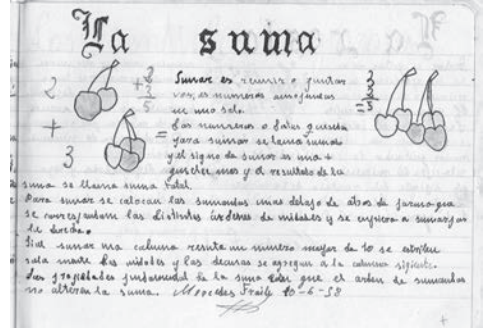 La suma
2 + 3 =
2
+3
5
Sumar es reunir o juntar
varios numeros
en uno solo.
Los numeros o datos
para sumar se llama sumo
y el signo de sumar es una +
y el resultado de la
suma se llama suma total.
Para sumar se colocan los sumandos unos debajo de otros de forma que
se correspondan las distintas órdenes de unidades y se empieza a sumar por
la derecha.
Si al sumar una columna resulta un numero mayor de 10 se escriben
las unidades y las decenas se agregan a la columna
fundamental de la suma que el orden de sumandos
no alteran la suma. Mercedes Fraile 10-6-58